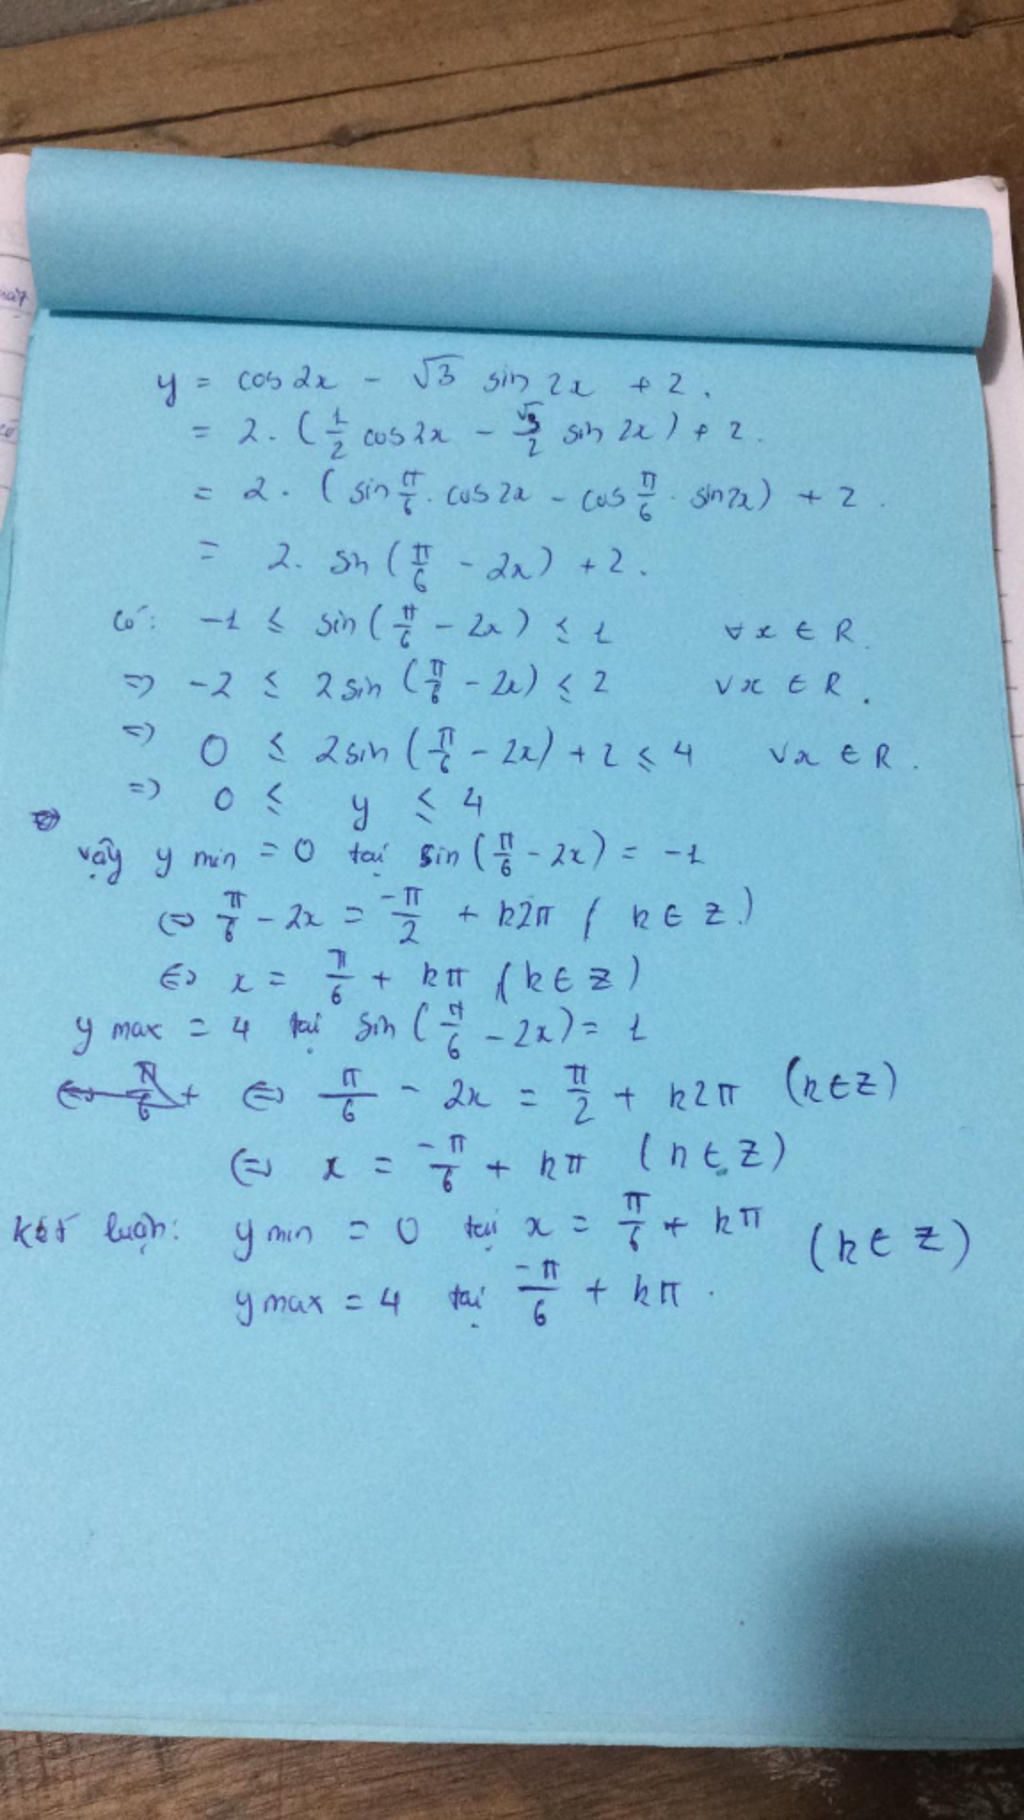 y = cos 2x - √3 sin 2x + 2.
= 2. (1/2 cos 2x - √3/2 sin 2x) + 2.
= 2. (sin π/6 . cos 2x - cos π/6 . sin 2x) + 2.
= 2. sin (π/6 - 2x) + 2.
Có: -1 ≤ sin (π/6 - 2x) ≤ 1 ∀x ∈ R.
=> -2 ≤ 2 sin (π/6 - 2x) ≤ 2 ∀x ∈ R.
=> 0 ≤ 2 sin (π/6 - 2x) + 2 ≤ 4 ∀x ∈ R.
=> 0 ≤ y ≤ 4
vậy y min = 0 tại sin (π/6 - 2x) = -1
<=> π/6 - 2x = -π/2 + k2π ( k ∈ Z.)
<=> x = π/6 + kπ (k ∈ Z)
y max = 4 tại sin (π/6 - 2x) = 1
<=> π/6 - 2x = π/2 + k2π (k ∈ Z)
<=> x = -π/6 + kπ (k ∈ Z)
Kết luận: y min = 0 tại x = π/6 + kπ (k ∈ Z)
y max = 4 tại -π/6 + kπ.